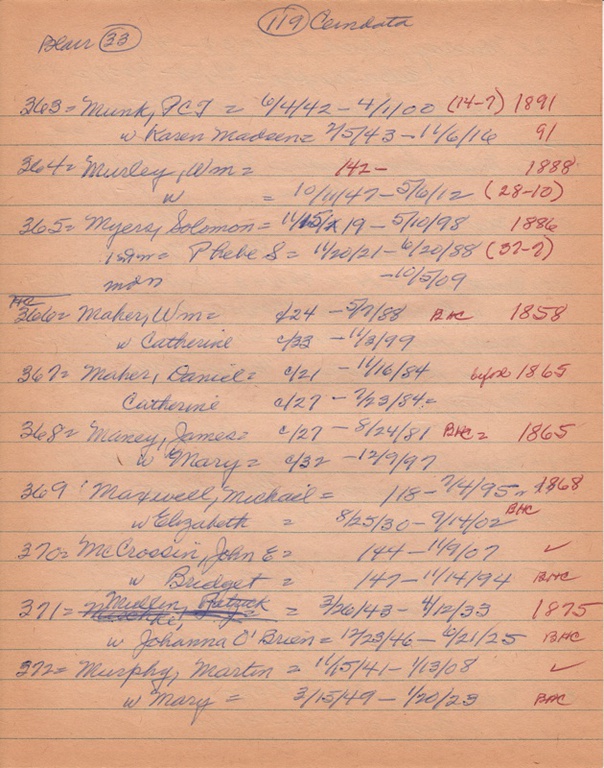 119 Cemdata
Blair 33
363= Munk, PCT = 6/4/42 - 4/1/00 (14-7) 1891
w Karen Madsen= 2/5/43 - 11/6/16 91
364= Murley, Wm= 142- 1888
w = 10/11/47-5/6/12 (28-10)
365= Myers, Solomon= 11/15/19 - 5/10/98 1886
Phebe S= 11/20/21- 6/20/88 (37-7)
mdn -10/5/09
HC
366= Maher, Wm= c/24 - 5/7/88 BHC 1858
w Catherine c/33 - 11/3/99
367= Maher, Daniel= c/21 - 11/16/84 before 1865
Catherine c/27 - 7/23/84=
368= Maney, James= c/27 - 8/24/81 BHC= 1865
w Mary= c/32 -12/9/97
369 Maxwell, Michail= /18 - 7/4/95 1868
BHC
w Elizabeth = 8/25/30 - 9/14/02
370= McCrossin, John E= 144 - 11/9/07 ✓
w Bridget = 147 - 11/14/94 BHC
Mullin, Patrick
371= = 3/26/43 - 4/12/33 1875
w Johanna O'Brien= 12/23/46 - 6/21/25 BHC
372= Murphy, Martin = 11/5/41- 1/13/08 ✓
w Mary = 3/15/49 - 1/20/23 BHC